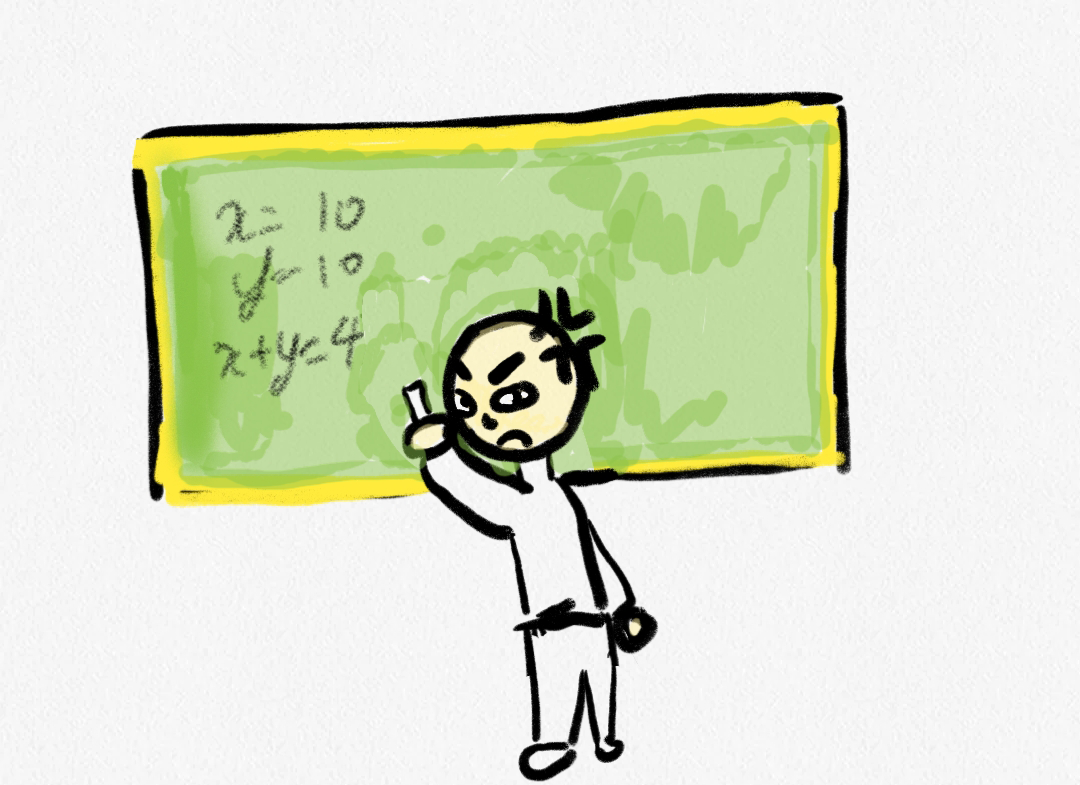 x= 10
y= 10
x+y=4